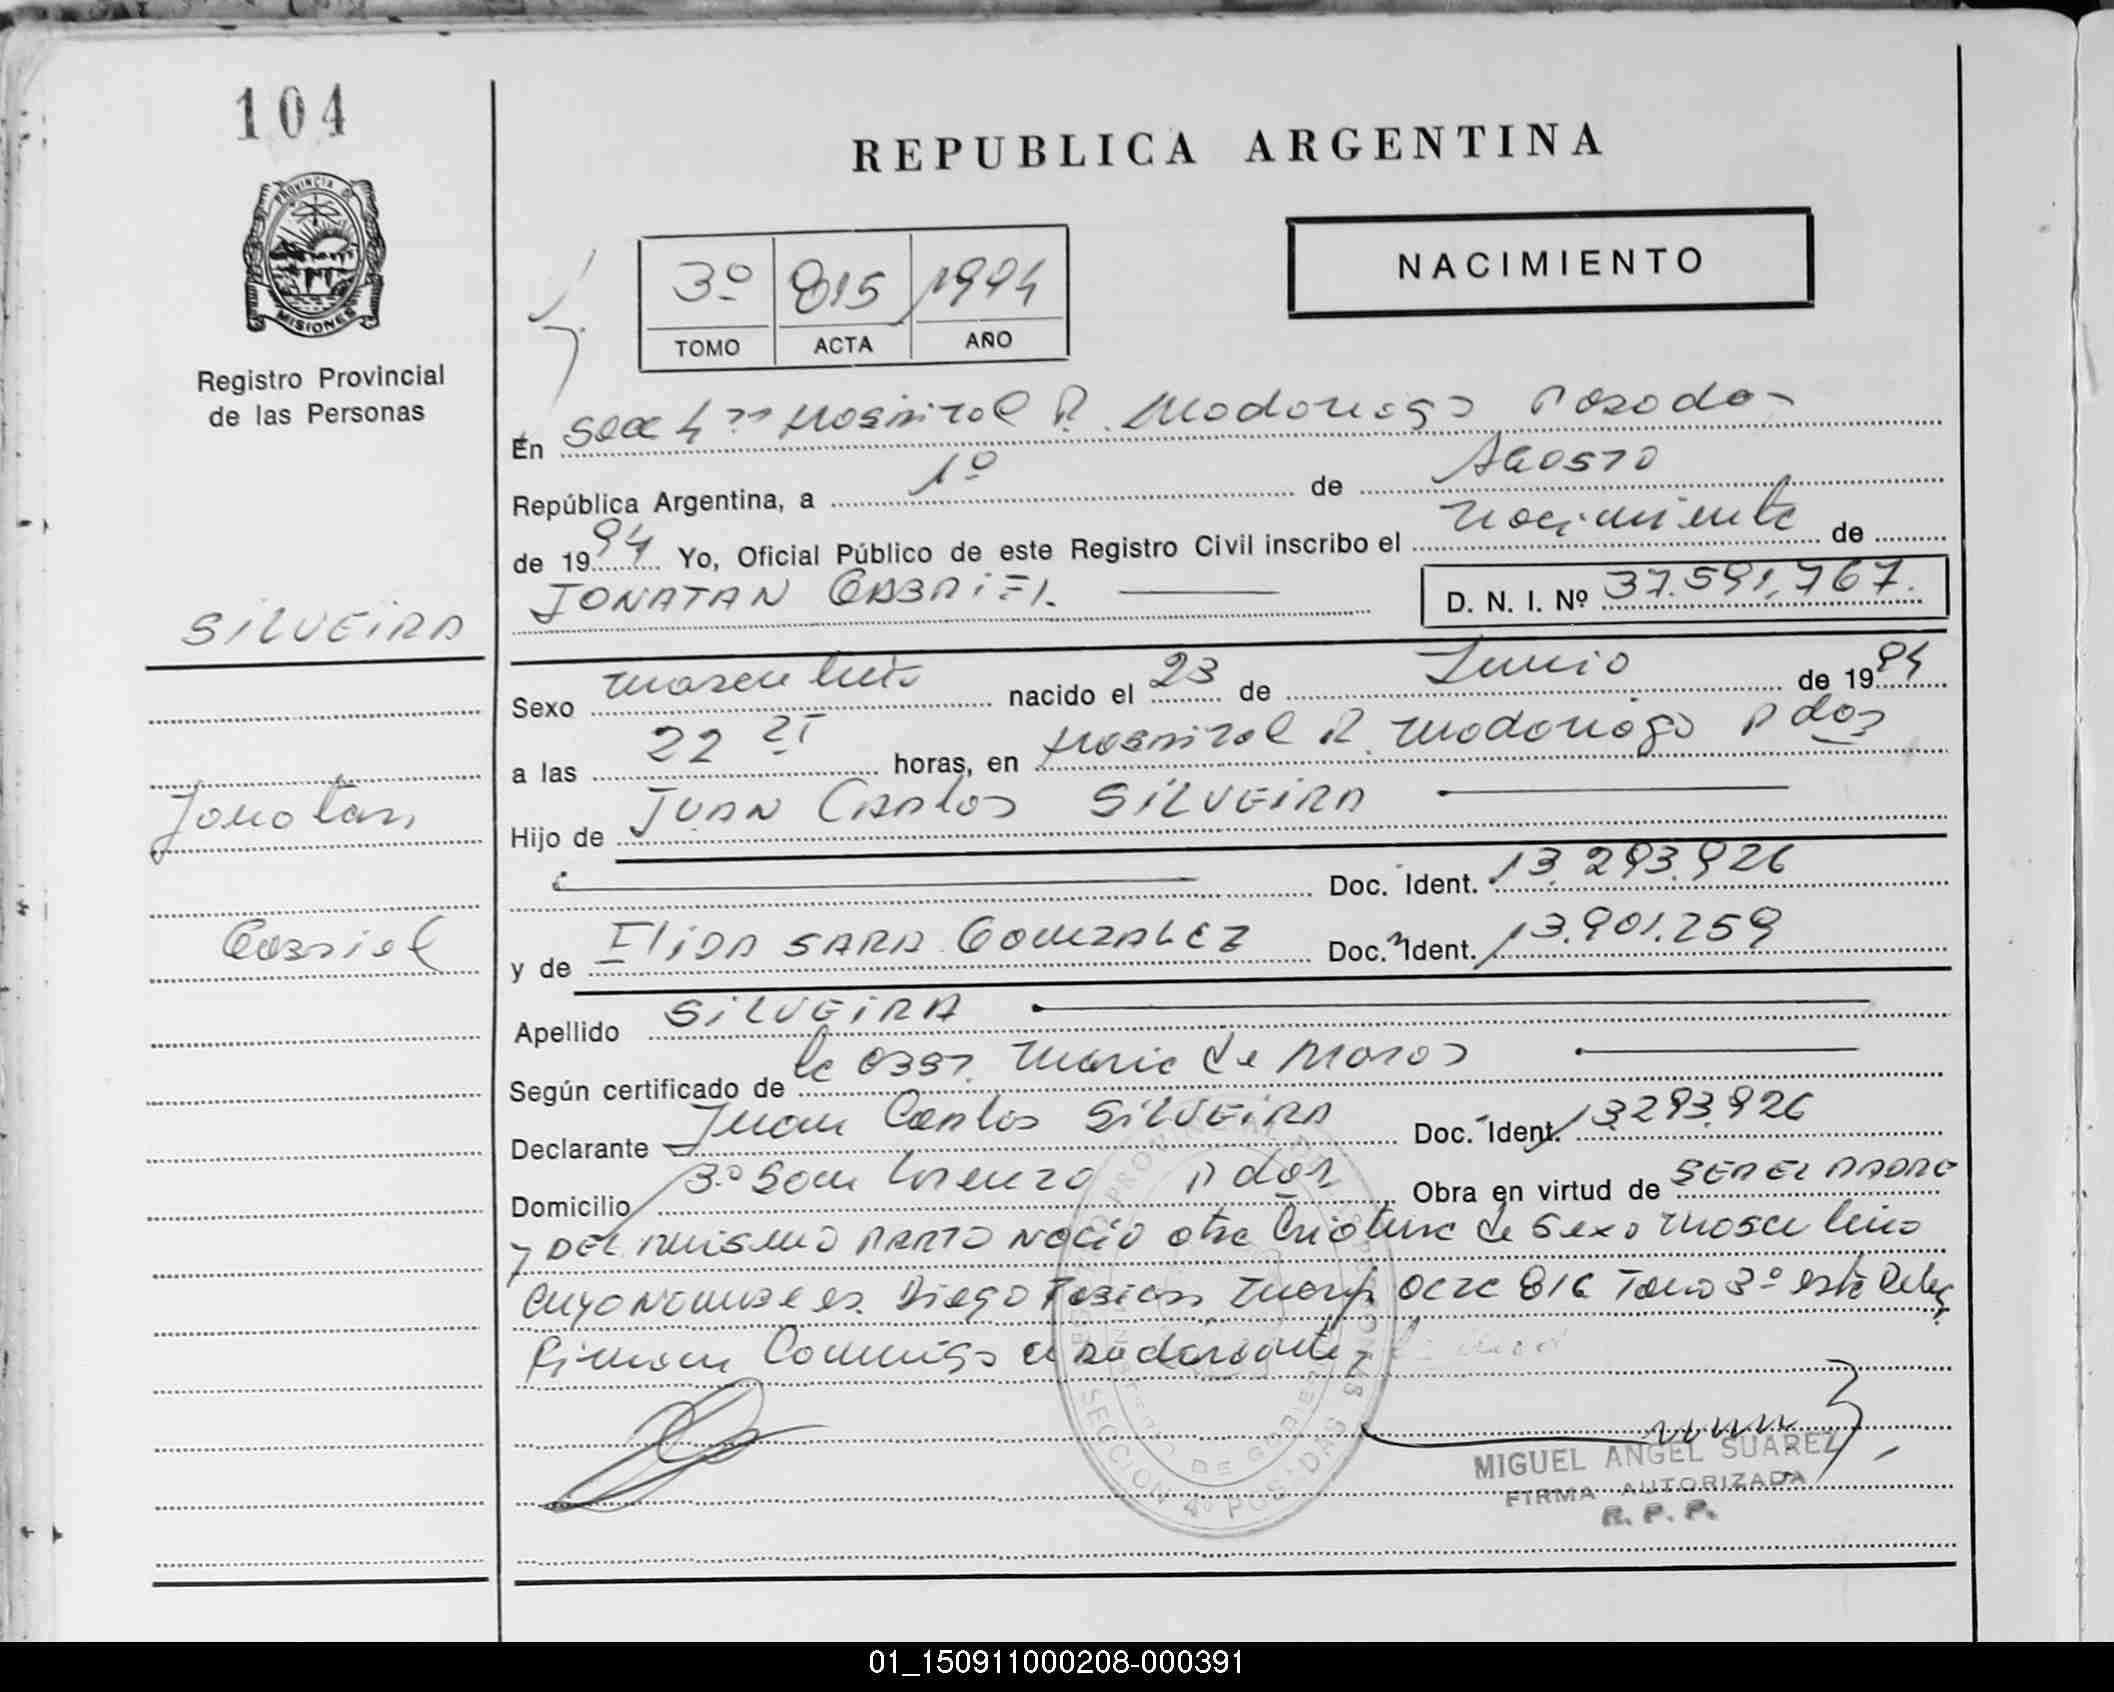 104
REPUBLICA ARGENTINA
PROVINCIA DE
MISIONES
Registro Provincial
de las Personas
3º 815 1994
TOMO ACTA AÑO
NACIMIENTO
En Secc 4ta Hospital R. Madariaga Posadas
República Argentina, a 1º de Agosto
de 1994 Yo, Oficial Público de este Registro Civil inscribo el nacimiento de
JONATAN GABRIEL D. N. I. Nº 37.591.767.
SILVEIRA
Sexo masculino nacido el 23 de Junio de 1994
a las 22 horas, en Hospital R. Madariaga Pdas
Jonatan
Hijo de JUAN CARLOS SILVEIRA
Doc. Ident. 13.293.926
Gabriel
y de ELIDA SARA GONZALEZ Doc. Ident. 13.901.259
Apellido SILVEIRA
Según certificado de la Obst. Maria de
Declarante Juan Carlos SILVEIRA Doc. Ident. 13.293.926
Domicilio Bº San Lorenzo Pdas Obra en virtud de SER EL PADRE
y DEL mismo PARTO NACIO otra criatura de sexo masculino
cuyo NOMBRE es Diego Fabian acta 816 Tomo 3º esta Deleg
Firman Conmigo el
SECCION 4º POSADAS
MIGUEL ANGEL SUAREZ
FIRMA AUTORIZADA
R. P. P.
01_150911000208-000391